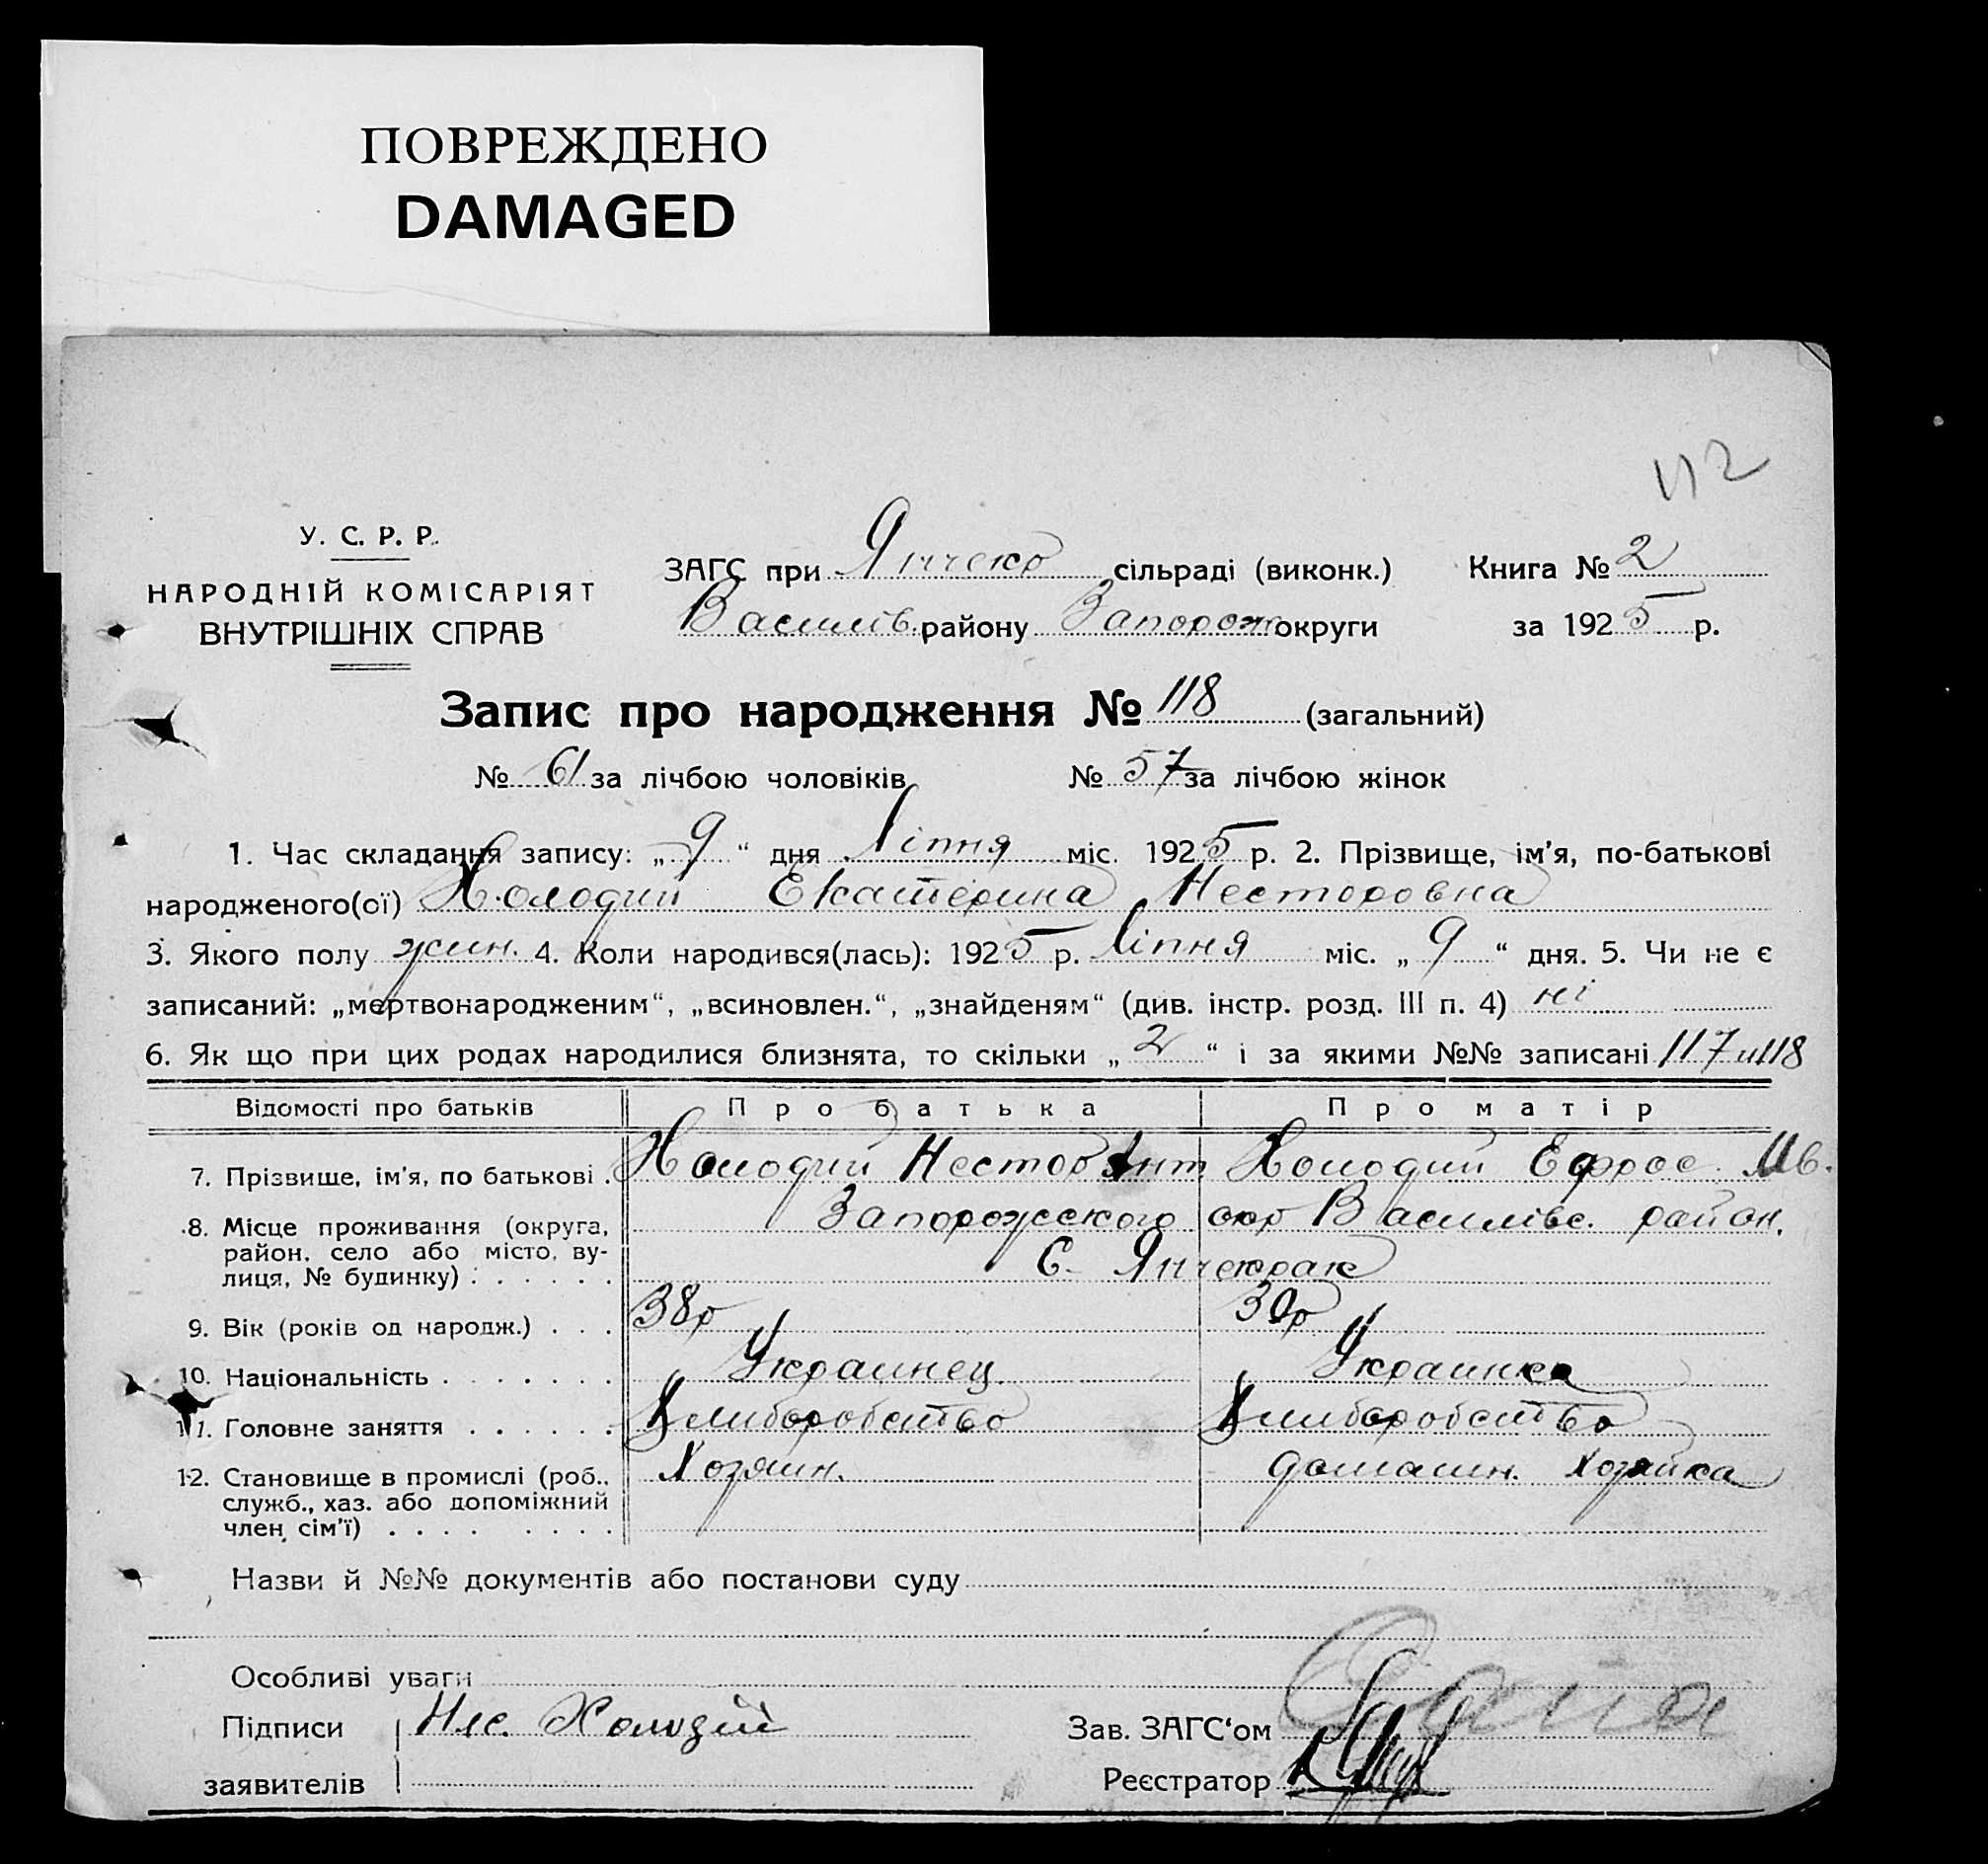 ПОВРЕЖДЕНО
DAMAGED
112
У. С. Р. Р.
НАРОДНІЙ КОМІСАРІЯТ
ВНУТРІШНІХ СПРАВ
ЗАГС при Янчекр сільраді (виконк.) Книга № 2
Василів. району Запорож округи за 1925 р.
Запис про народження № 118 (загальний)
№ 61 за лічбою чоловіків № 57 за лічбою жінок
1. Час складання запису: „9“ дня Ліпня міс. 1925 р. 2. Прізвище, ім'я, по-батькові
народженого(ої) Холодий Екатерина Несторовна
3. Якого полу жин. 4. Коли народився(лась): 1925 р. Ліпня міс. „9“ дня. 5. Чи не є
записаний: „мертвонародженим“, „всиновлен.“, „знайденям“ (див. інстр. розд. III п. 4) ні
6. Як що при цих родах народилися близнята, то скільки „2“ і за якими №№ записані 117 и 118
Відомості про батьків Про батька Про матір
7. Прізвище, ім'я, по батькові . Холодий Нестор Ант. Холодий Ефрос. Ив.
8. Місце проживання (округа, Запорожского окр Василівс. район.
район, село або місто, ву-
лиця, № будинку) . . . . . . С. Янчекрак
9. Вік (років од народж.) . . . 38р 39р
10. Національність . . . . . . . Украинец Украинка
11. Головне заняття . . . . . . Хлиборобство Хлиборобство
12. Становище в промислі (роб., Хозяин. домашн. хозяйка
служб., хаз. або допоміжний
член сім'ї) . . . . . . . .
Назви й №№ документів або постанови суду
Особливі уваги
Підписи Нес. Холодій Зав. ЗАГС'ом
заявителів Реєстратор